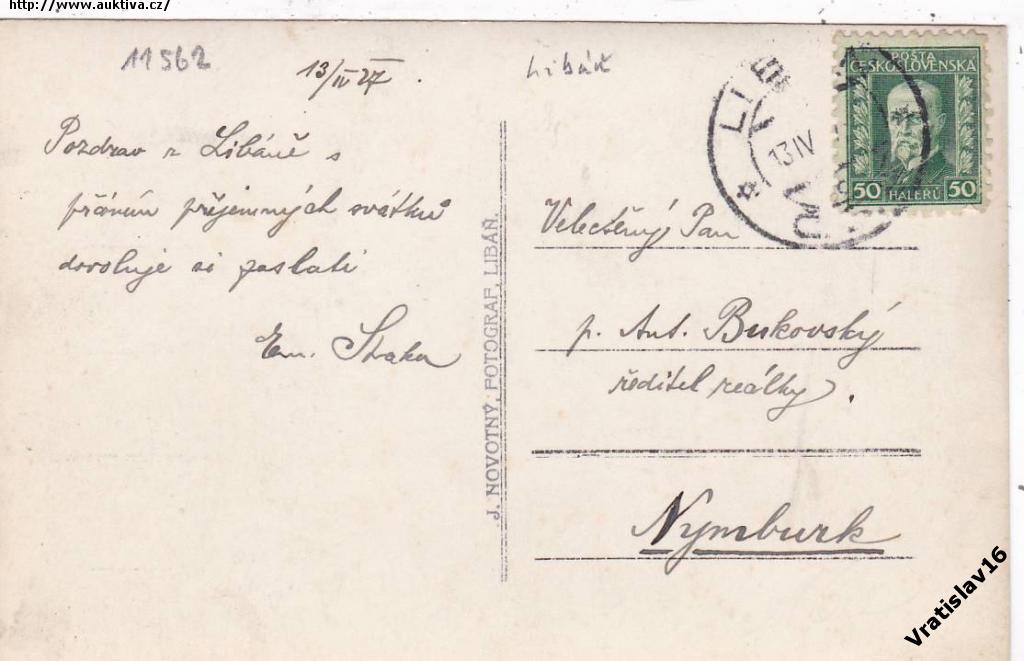 http://www.auktiva.cz/
11562
13/IV 27.
Libáň
Pozdrav z Libáně s
přáním příjemných svátků
dovoluje si poslati
Em. Straka
J. NOVOTNÝ, FOTOGRAF, LIBÁŇ.
POŠTA
ČESKOSLOVENSKA
50 HALÉŘŮ 50
LIB
13 IV
Velectěný Pan
p. Ant. Bukovský
ředitel reálky.
Nymburk
Vratislav16